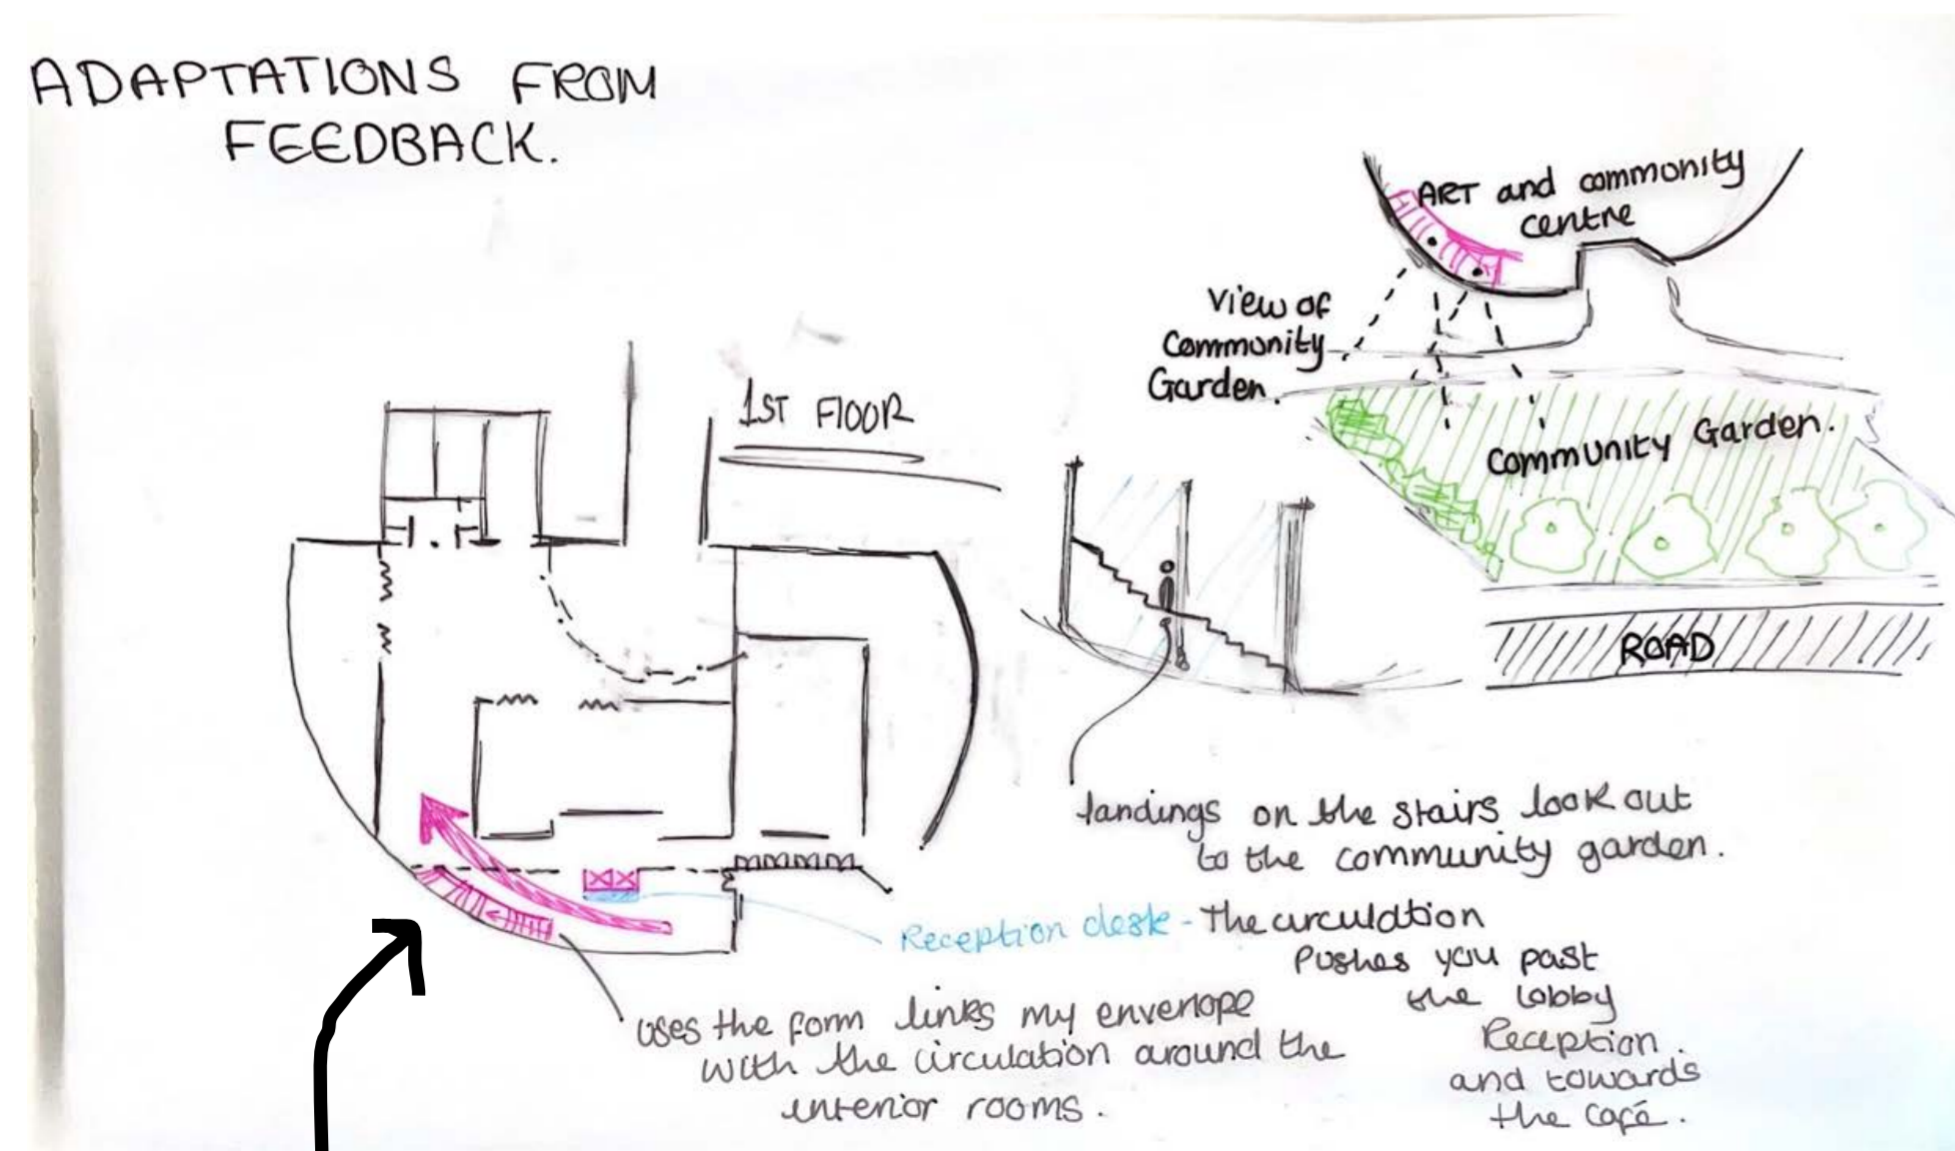 ADAPTATIONS FROM
FEEDBACK.
ART and community
centre
View of
Community
Garden.
Community Garden.
ROAD
1ST FLOOR
landings on the stairs look out
to the community garden.
Reception desk - The circulation
Pushes you past
the lobby
Reception.
and towards
the café.
uses the form links my envelope
with the circulation around the
interior rooms.